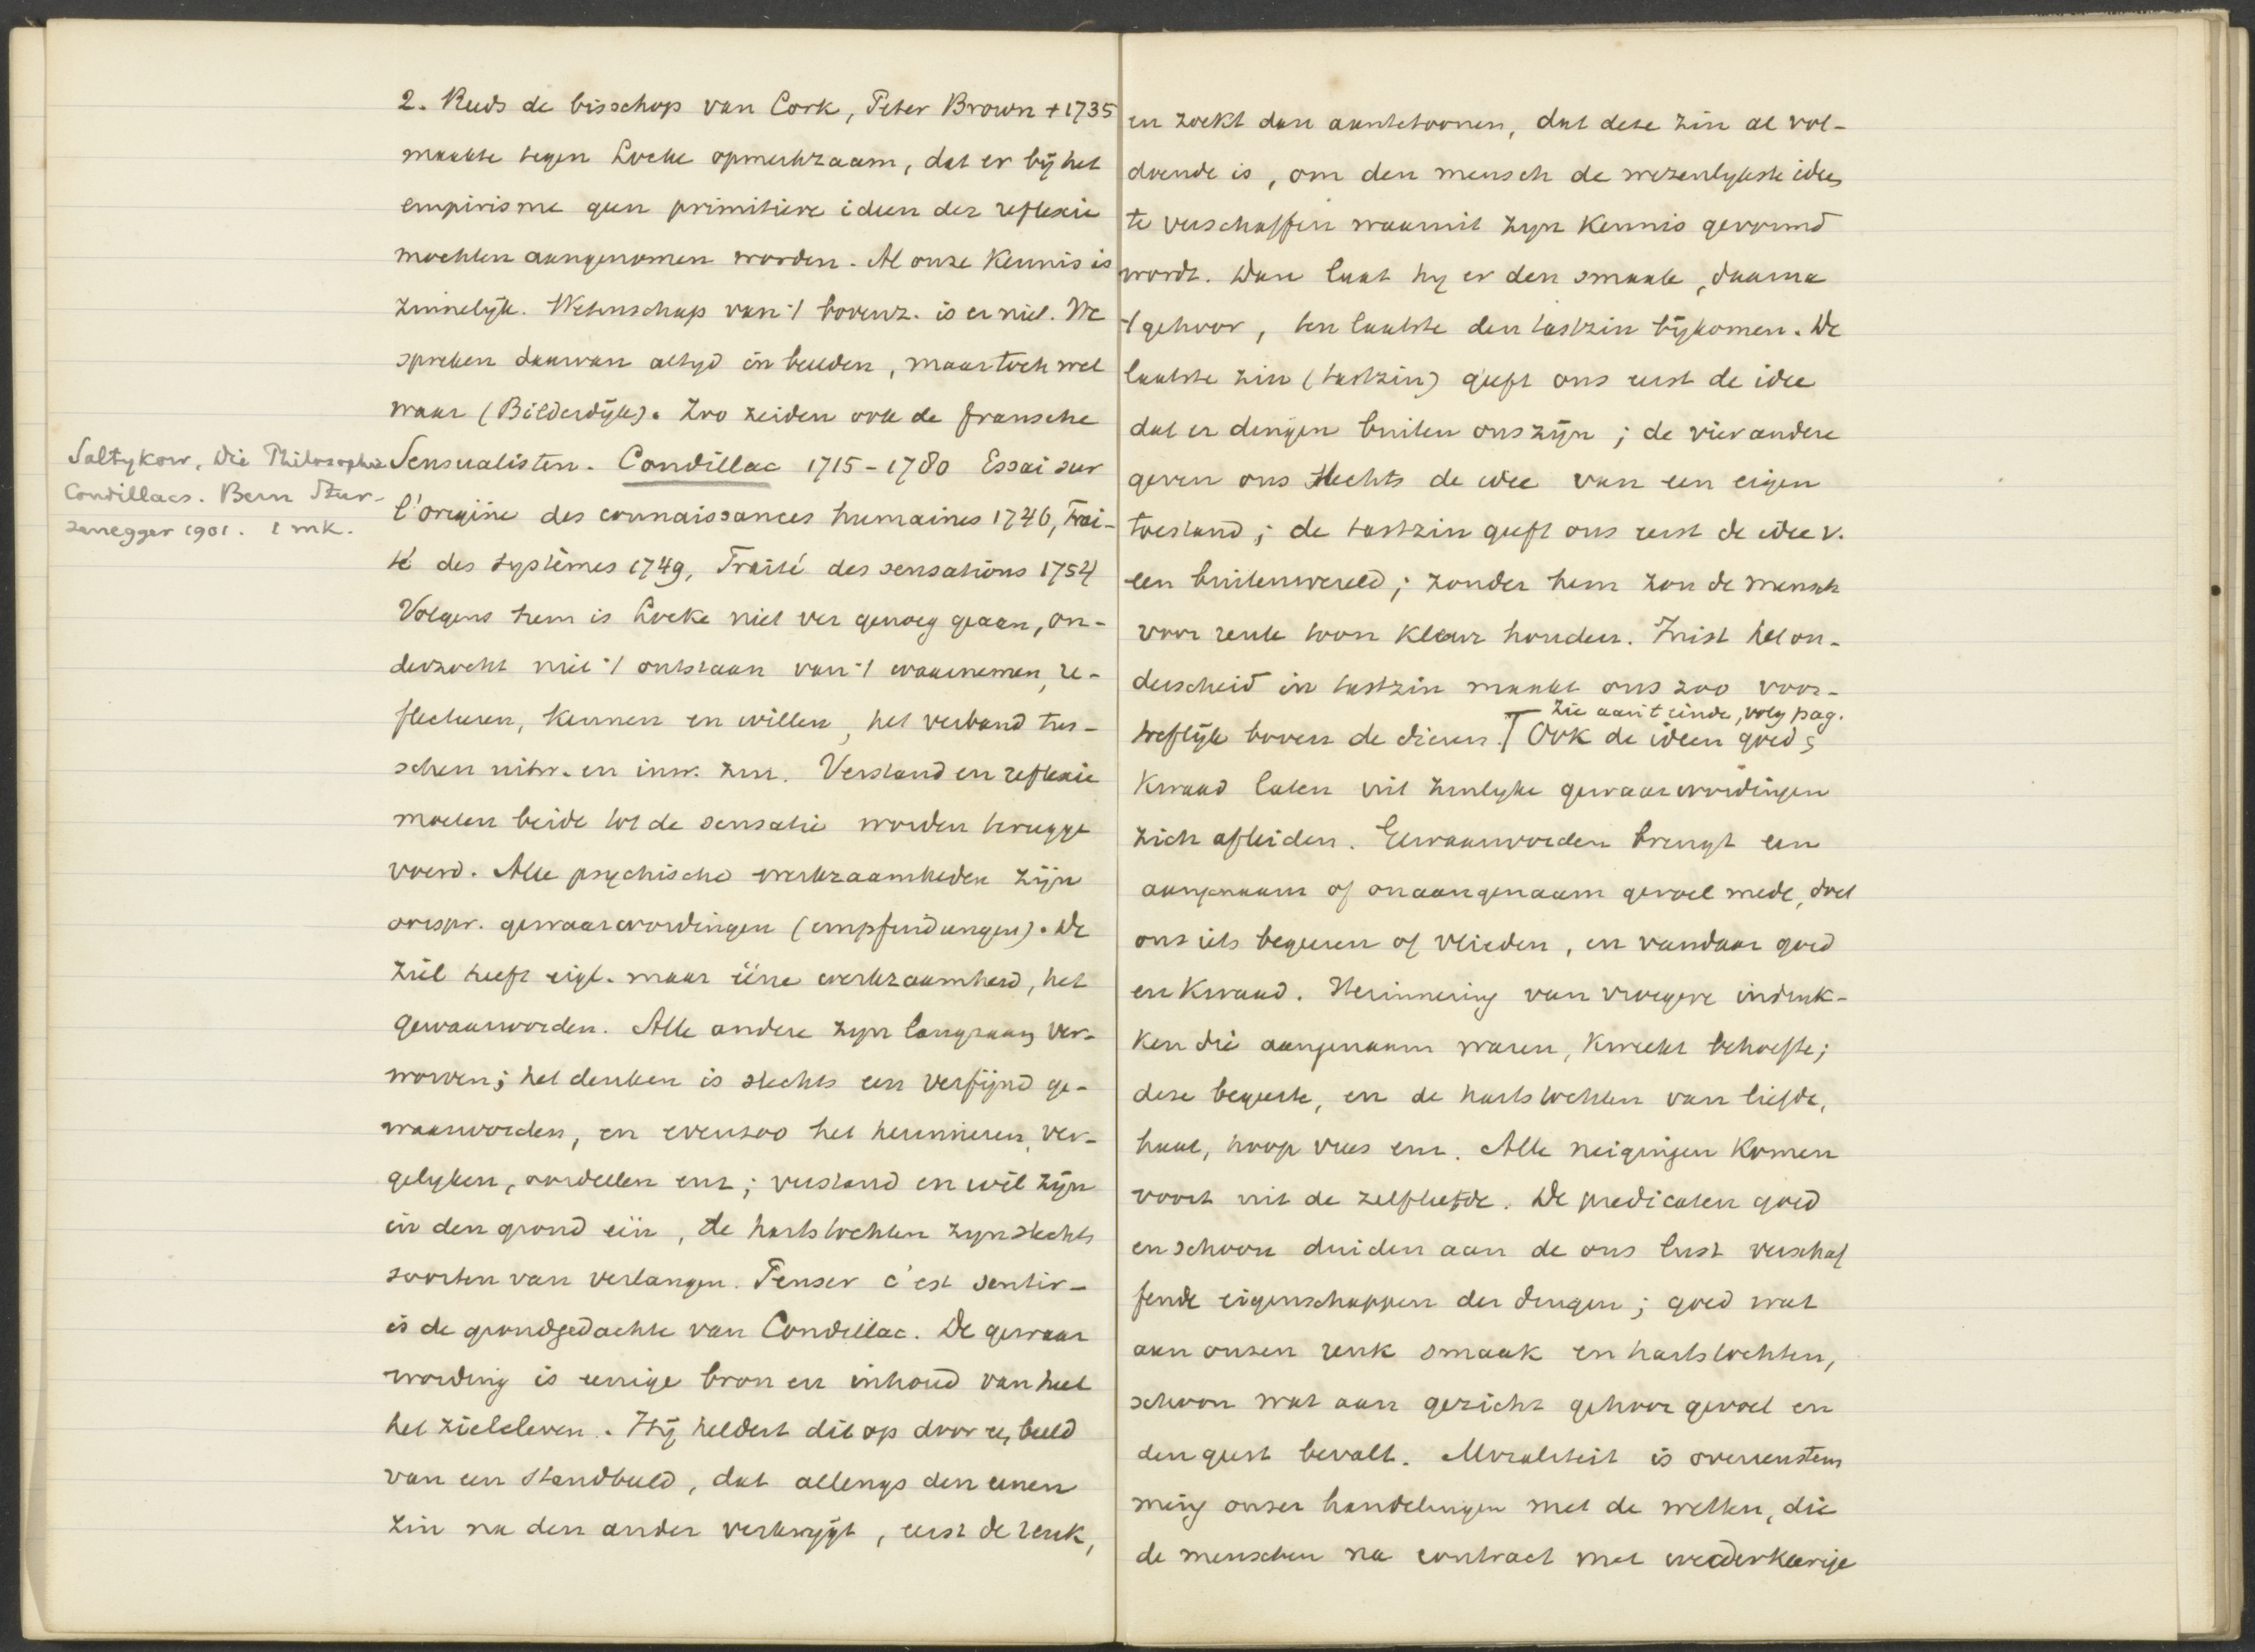 2. Reeds de bisschop van Cork, Peter Brown + 1735
maakte tegen Locke opmerkzaam, dat er bij het
empirisme geen primitieve ideen der reflexie
mochten aangenomen worden. Al onze kennis is
zinnelijk. Wetenschap van 't bovenz. is er niet. We
spreken daarvan altyd in beelden, maar toch wel
waar (Bilderdijk). Zoo zeiden ook de fransche
Sensualisten. Condillac 1715-1780 Essai sur
l'origine des connaissances humaines 1746, Trai-
té des systèmes 1749, Traité des sensations 1754
Volgens hem is Locke niet ver genoeg gegaan, on-
derzocht niet 't ontstaan van 't waarnemen, re-
flecteren, kennen en willen, het verband tus-
schen uitw. en inw. zin. Verstand en reflexie
moeten beide tot de sensatie worden terugge
voerd. Alle psychische werkzaamheden zijn
oorspr. gewaarwordingen (empfindungen). De
ziel heeft eigl. maar ééne werkzaamheid, het
gewaarworden. Alle andere zyn langzaam ver-
worven; het denken is slechts een verfijnd ge-
waarworden, en evenzoo het herinneren, ver-
gelyken, oordeelen enz; verstand en wil zijn
in den grond één, de hartstochten zyn slechts
soorten van verlangen. Penser c'est sentir-
is de grondgedachte van Condillac. De gewaar
wording is eenige bron en inhoud van heel
het zieleleven. Hij heldert dit op door 't beeld
van een standbeeld, dat allengs den eenen
zin na den ander verkrygt, eerst de reuk,
Saltykow, Die Philosophie
Condillacs. Bern Stur-
zenegger 1901. 1 mk.
en zoekt dan aantetoonen, dat deze zin al vol-
doende is, om den mensch de wezenlykste idees
te verschaffen waaruit zyn kennis gevormd
wordt. Dan laat hy er den smaak, daarna
't gehoor, ten laatste den tastzin bijkomen. De
laatste zin (tastzin) geeft ons eerst de idee
dat er dingen buiten ons zijn; de vier andere
geven ons slechts de idee van een eigen
toestand; de tastzin geeft ons eerst de idee v.
een buitenwereld; zonder hem zou de mensch
voor reuk toon kleur houden. Juist het on-
derscheid in tastzin maakt ons zoo voor-
treflijk boven de dieren. Ook de ideen goed &
zie aan 't einde, volg pag.
kwaad laten uit zinlyke gewaarwordingen
zich afleiden. Gewaarworden brengt een
aangenaam of onaangenaam gevoel mede, doet
ons iets begeeren of vlieden, en vandaar goed
en kwaad. Herinnering van vroegere indruk-
ken die aangenaam waren, kweekt behoefte;
deze begeerte, en de hartstochten van liefde,
haat, hoop vrees enz. Alle neigingen komen
voort uit de zelfliefde. De predicaten goed
en schoon duiden aan de ons lust verschaf
fende eigenschappen der dingen; goed wat
aan onzen reuk smaak en hartstochten,
schoon wat aan gezicht gehoor gevoel en
den geest bevalt. Moraliteit is overeenstem
ming onzer handelingen met de wetten, die
de menschen na contract met wederkeerige